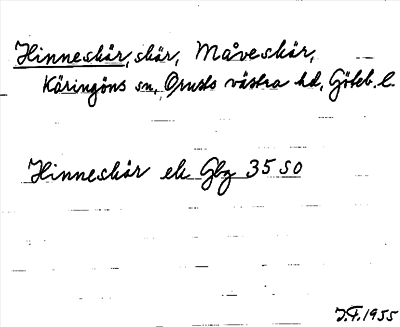 Hinneskär, skär, Måveskär,
Käringöns sn, Orusts västra hd, Göteb. l.
Hinneskär ek Gbg 35 SO
J.F. 1955